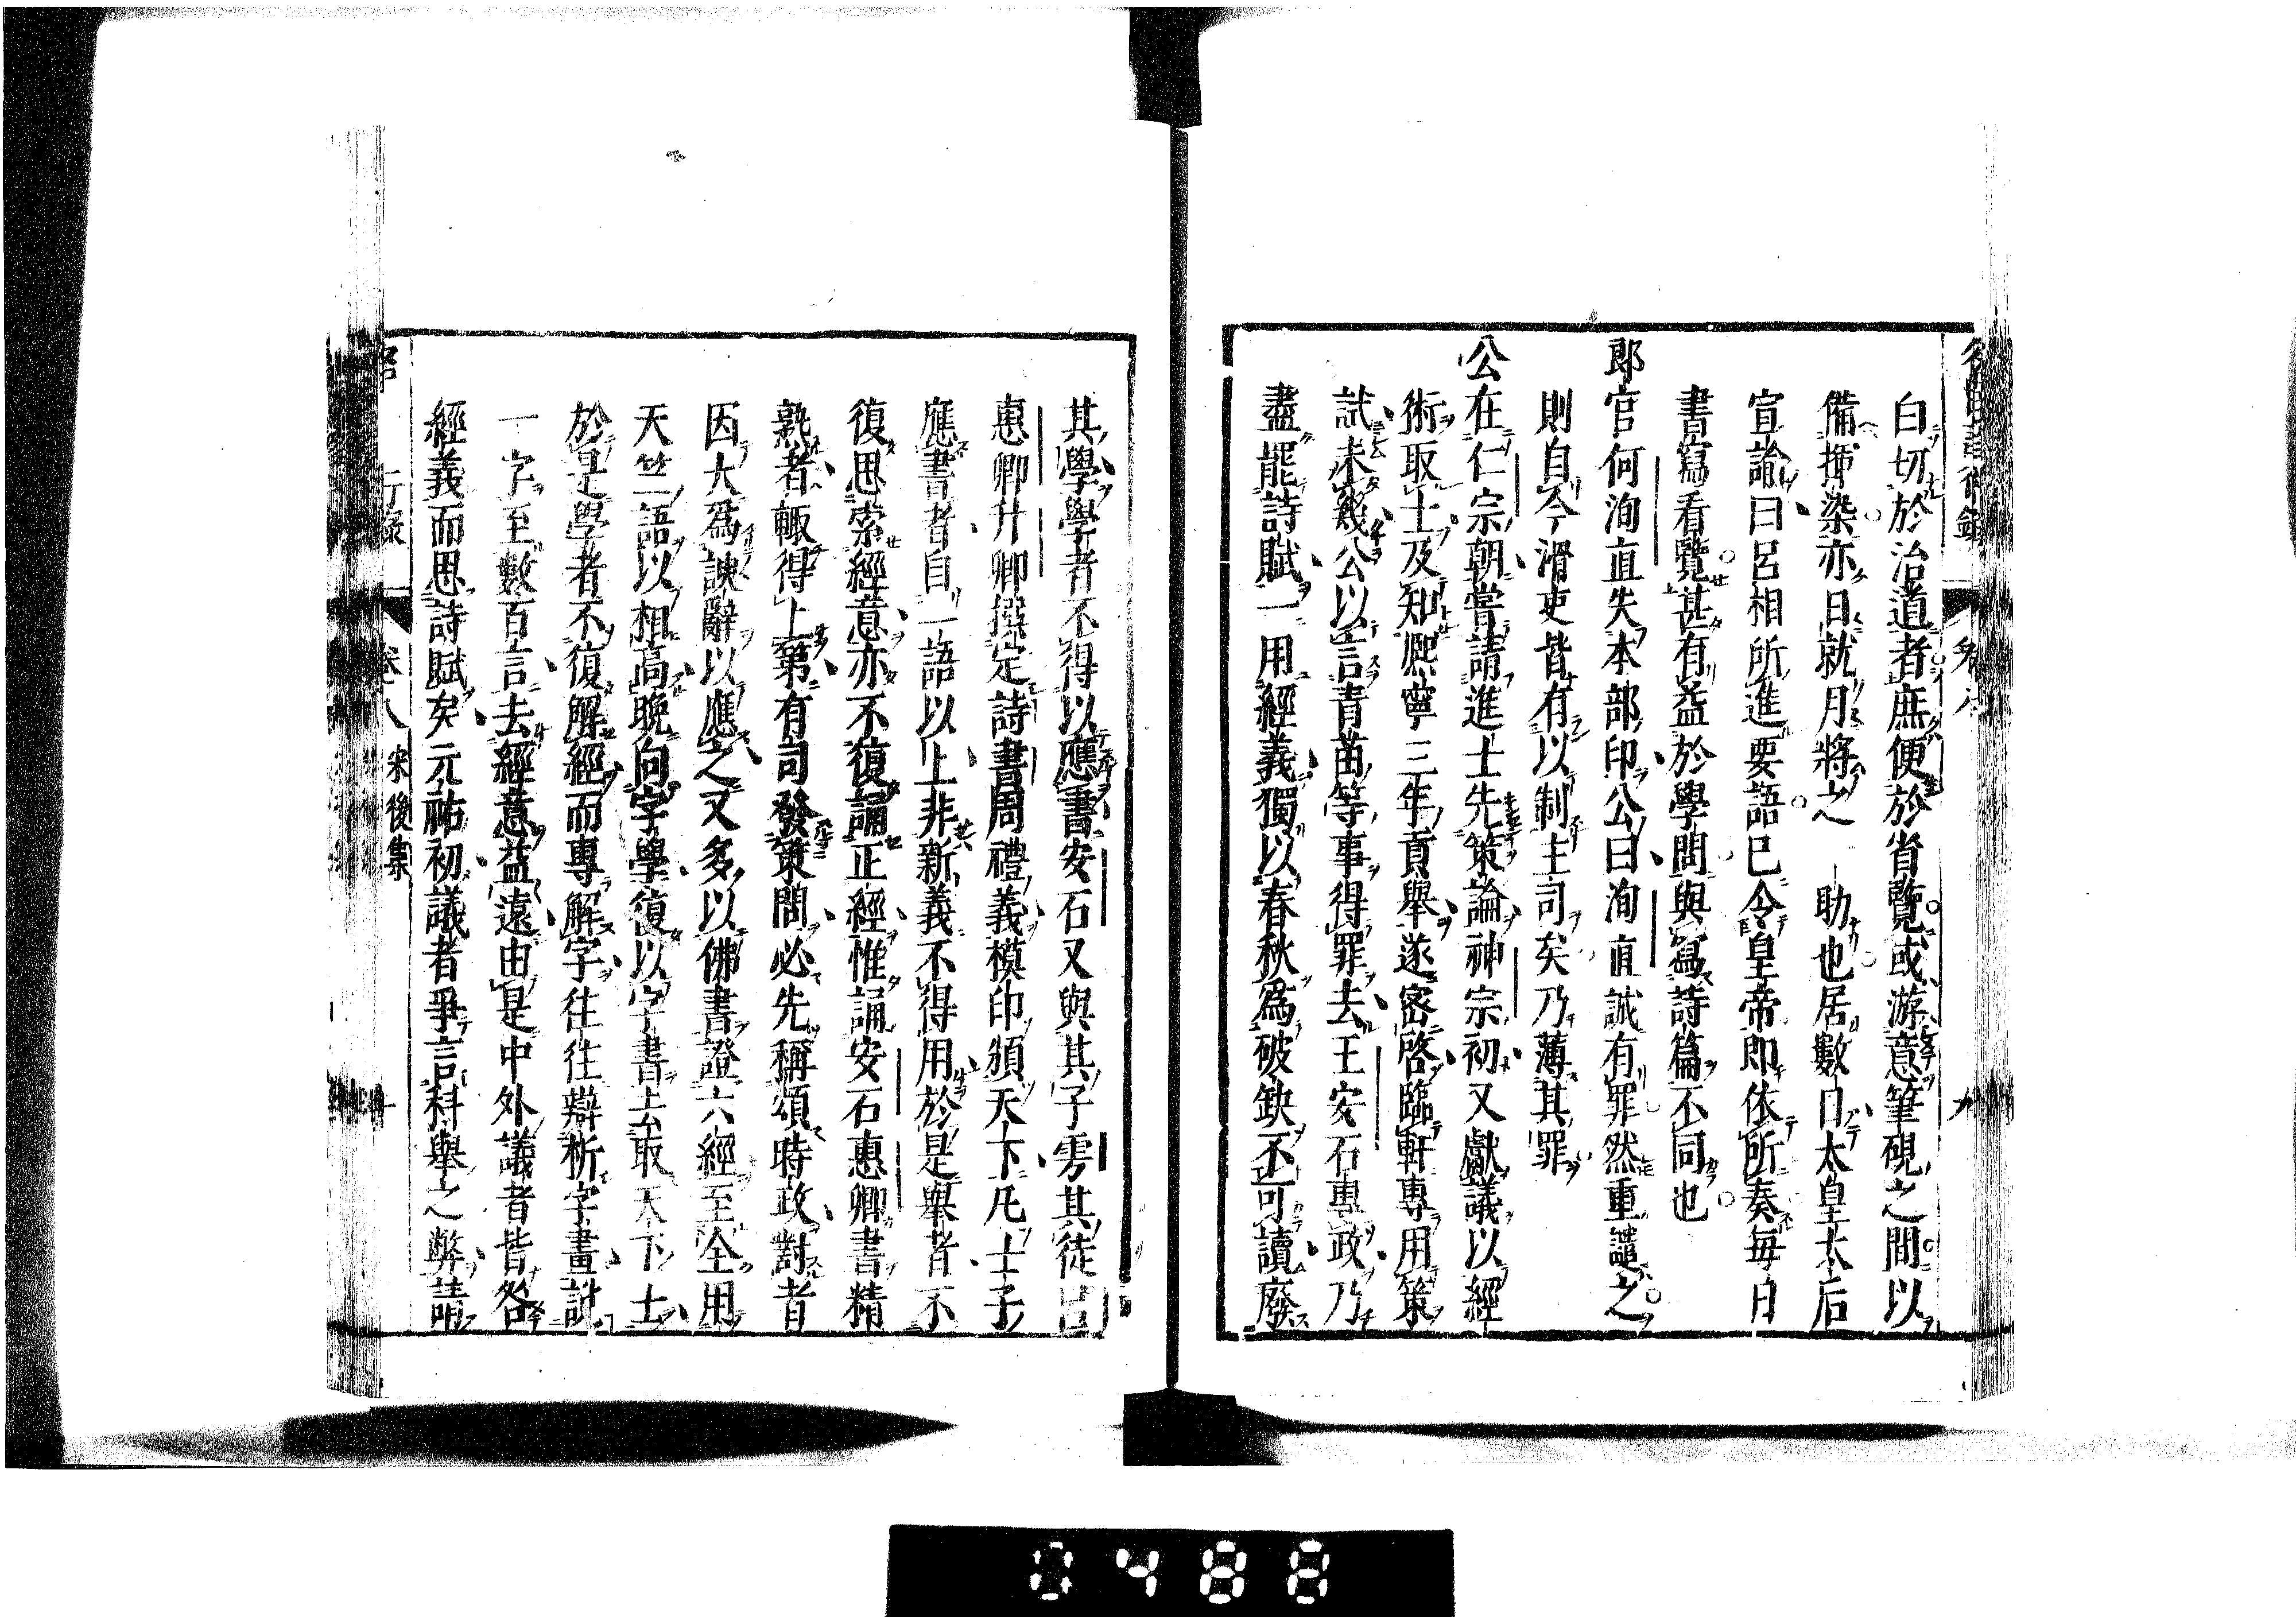 白切於治道者庶便於省覽或游意筆硯之間以
備揮染亦日就月將之一助也居數日太皇太后
宣諭曰呂相所進要語已令皇帝即依所奏毎日
書寫看覽甚有益於學問與寫詩篇不同也
郎官何洵直失本部印公曰洵直誠有罪然重譴之
則自今滑吏皆有以制主司矣乃薄其罪
公在仁宗朝嘗請進士先策論神宗初又獻議以經
術取士及知熈寧三年貢舉遂密啓臨軒專用策
試未幾公以言青苗等事得罪去王安石專政乃
盡罷詩賦一用經義獨以春秋為破缺不可讀廢
其學學者不得以應書安石又與其子雱其徒呂
惠卿升卿撰定詩書周禮義模印頒天下凡士子
應書者自一語以上非新義不得用於是舉者不
復思索經意亦不復誦正經惟誦安石惠卿書精
熟者輙得上第有司發策問必先稱頌時政對者
因大為諛辭以應之又多以佛書證六經至全用
天竺語以相高晩向字學復以字書去取天下士
於是學者不復解經而專解字往往辯析字畫說
一字至數百言去經意益遠由是中外議者皆咎
經義而思詩賦矣元祐初議者爭言科舉之弊請
卷八 宋後集
0488